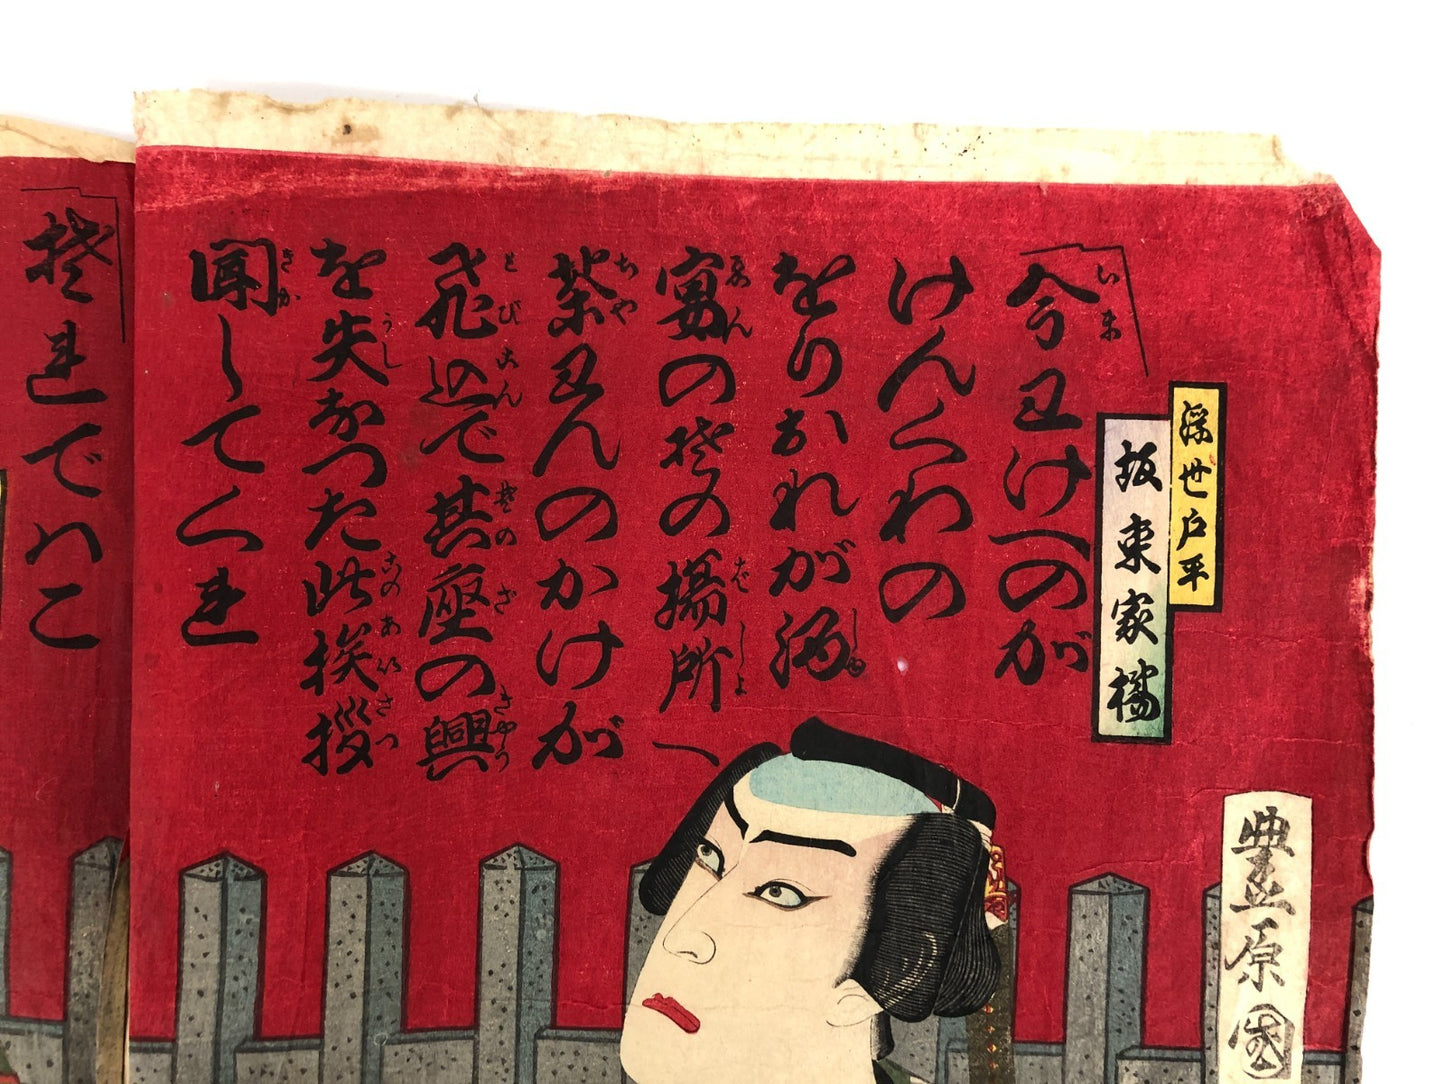 浮世戸平
坂東家橘
今王けへのが
けんくわの
をりおれが
宴の其の場所へ
茶王んのかけが
飛込で其座の興
を失なつた此挨拶
聞してくれ
それでハこ
豊原国